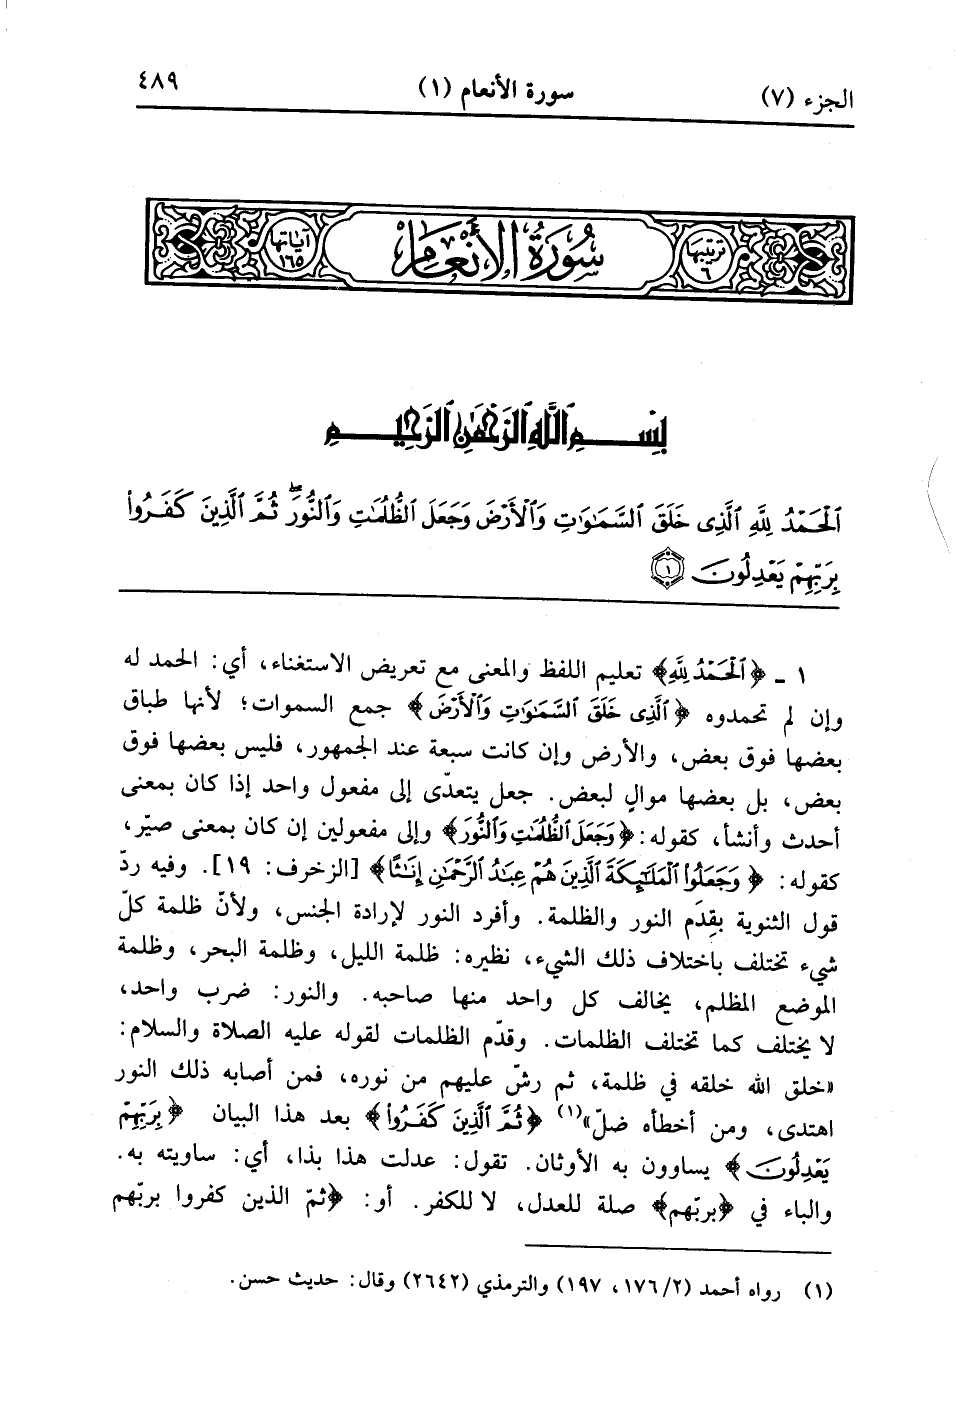 الجزء (٧)
سورة الأنعام (١)
٤٨٩
ترتيبها ٦
سُورَةُ الأَنْعَامِ
آياتها ١٦٥
بِسْمِ اللَّهِ الرَّحْمَٰنِ الرَّحِيمِ
ٱلْحَمْدُ لِلَّهِ ٱلَّذِى خَلَقَ ٱلسَّمَٰوَٰتِ وَٱلْأَرْضَ وَجَعَلَ ٱلظُّلُمَٰتِ وَٱلنُّورَ ۖ ثُمَّ ٱلَّذِينَ كَفَرُوا۟
بِرَبِّهِمْ يَعْدِلُونَ ١
١ ـ ﴿ٱلْحَمْدُ لِلَّهِ﴾ تعليم اللفظ والمعنى مع تعريض الاستغناء، أي: الحمد له
وإن لم تحمدوه ﴿ٱلَّذِى خَلَقَ ٱلسَّمَٰوَٰتِ وَٱلْأَرْضَ﴾ جمع السموات؛ لأنها طباق
بعضها فوق بعض، والأرض وإن كانت سبعة عند الجمهور، فليس بعضها فوق
بعض، بل بعضها موالٍ لبعض. جعل يتعدّى إلى مفعول واحد إذا كان بمعنى
أحدث وأنشأ، كقوله: ﴿وَجَعَلَ ٱلظُّلُمَٰتِ وَٱلنُّورَ﴾ وإلى مفعولين إن كان بمعنى صيّر،
كقوله: ﴿وَجَعَلُوا۟ ٱلْمَلَٰٓئِكَةَ ٱلَّذِينَ هُمْ عِبَٰدُ ٱلرَّحْمَٰنِ إِنَٰثًا﴾ [الزخرف: ١٩]. وفيه ردّ
قول الثنوية بقِدَم النور والظلمة. وأفرد النور لإرادة الجنس، ولأنّ ظلمة كلّ
شيء تختلف باختلاف ذلك الشيء، نظيره: ظلمة الليل، وظلمة البحر، وظلمة
الموضع المظلم، يخالف كل واحد منها صاحبه. والنور: ضرب واحد،
لا يختلف كما تختلف الظلمات. وقدّم الظلمات لقوله عليه الصلاة والسلام:
«خلق الله خلقه في ظلمة، ثم رشّ عليهم من نوره، فمن أصابه ذلك النور
اهتدى، ومن أخطأه ضلّ»(١) ﴿ثُمَّ ٱلَّذِينَ كَفَرُوا۟﴾ بعد هذا البيان ﴿بِرَبِّهِمْ
يَعْدِلُونَ﴾ يساوون به الأوثان. تقول: عدلت هذا بذا، أي: ساويته به.
والباء في ﴿بربّهم﴾ صلة للعدل، لا للكفر. أو: ﴿ثمّ الذين كفروا بربّهم
(١) رواه أحمد (٢/ ١٧٦، ١٩٧) والترمذي (٢٦٤٢) وقال: حديث حسن.